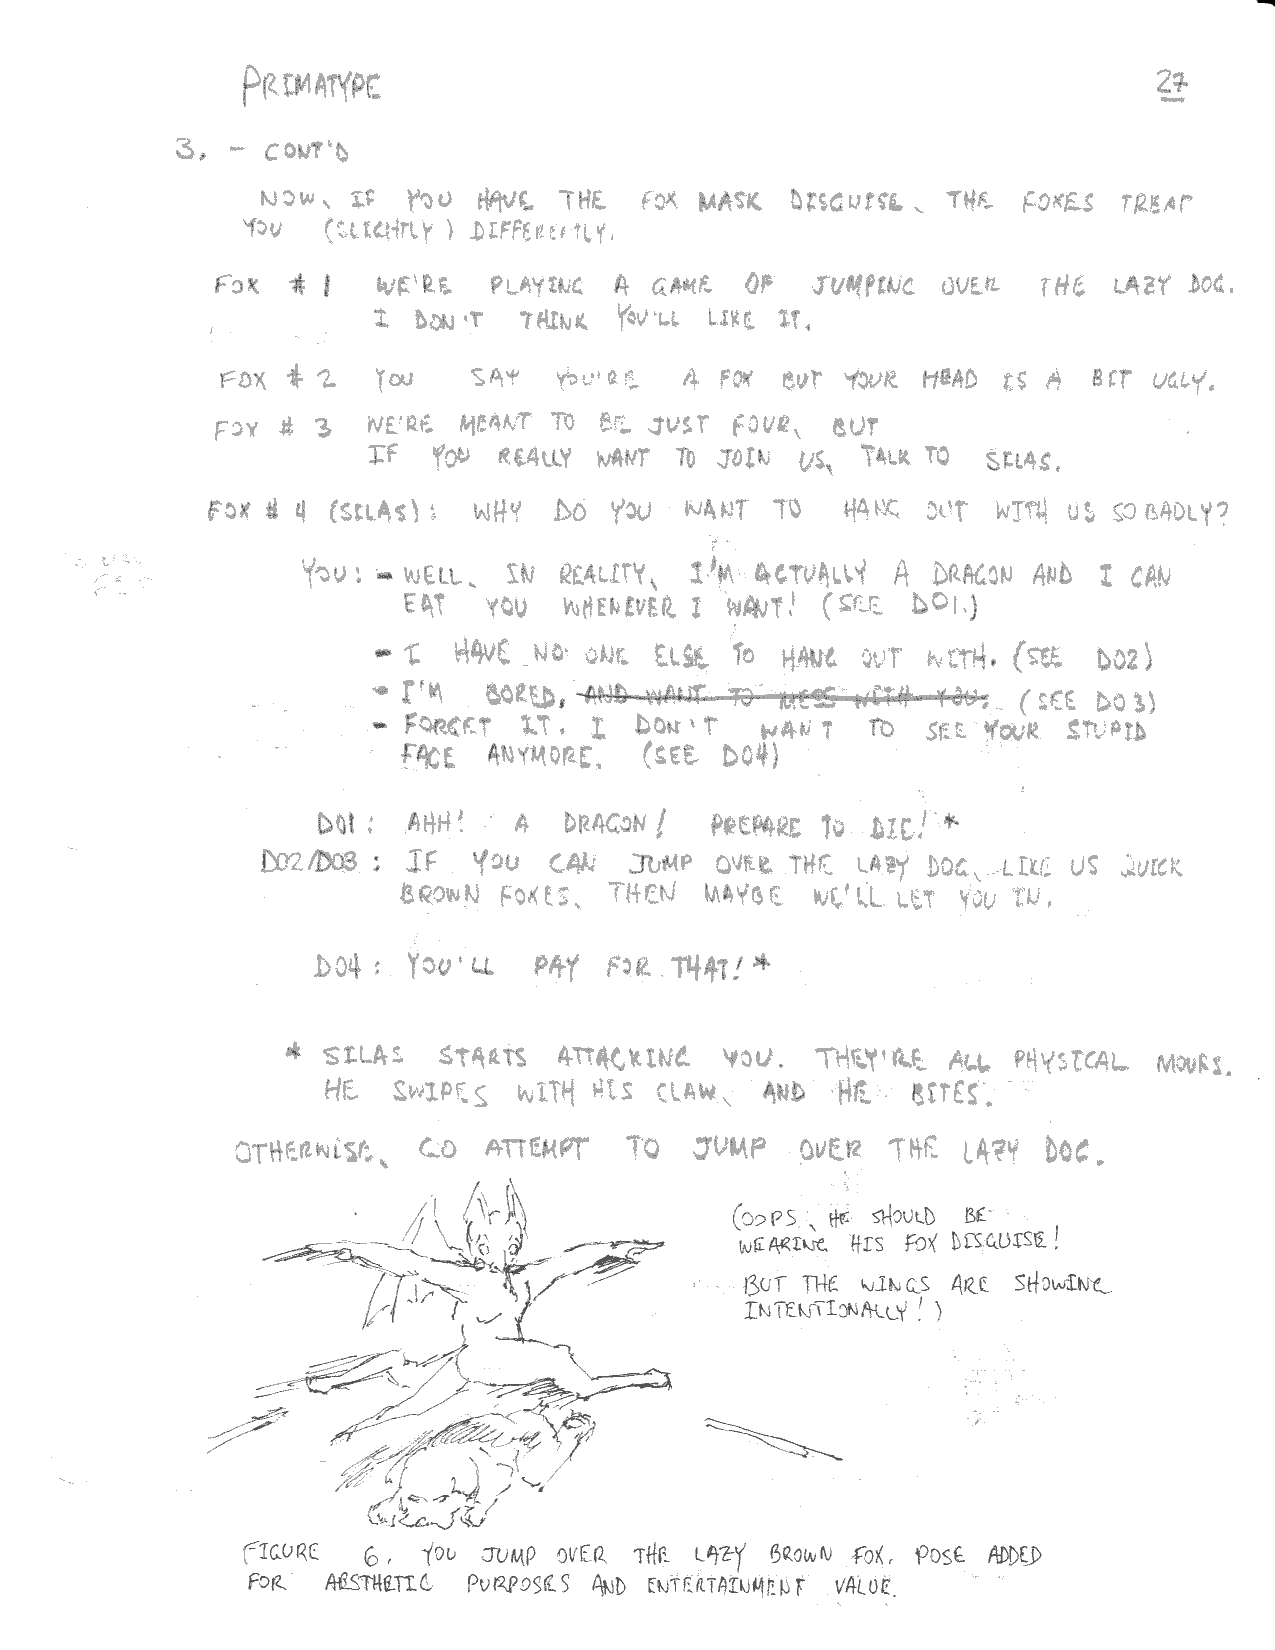 PRIMATYPE
27
3. - CONT'D
NOW, IF YOU HAVE THE FOX MASK DISGUISE, THE FOXES TREAT
YOU (SLIGHTLY) DIFFERENTLY.
FOX #1 WE'RE PLAYING A GAME OF JUMPING OVER THE LAZY DOG.
I DON'T THINK YOU'LL LIKE IT.
FOX #2 YOU SAY YOU'RE A FOX BUT YOUR HEAD IS A BIT UGLY.
FOX #3 WE'RE MEANT TO BE JUST FOUR, BUT
IF YOU REALLY WANT TO JOIN US, TALK TO SILAS.
FOX #4 (SILAS): WHY DO YOU WANT TO HANG OUT WITH US SO BADLY?
YOU: - WELL, IN REALITY, I'M ACTUALLY A DRAGON AND I CAN
EAT YOU WHENEVER I WANT! (SEE D01.)
- I HAVE NO ONE ELSE TO HANG OUT WITH. (SEE D02)
- I'M BORED, AND WANT TO MESS WITH YOU. (SEE D03)
- FORGET IT. I DON'T WANT TO SEE YOUR STUPID
FACE ANYMORE. (SEE D04)
D01: AHH! A DRAGON! PREPARE TO DIE! *
D02/D03: IF YOU CAN JUMP OVER THE LAZY DOG, LIKE US QUICK
BROWN FOXES, THEN MAYBE WE'LL LET YOU IN.
D04: YOU'LL PAY FOR THAT! *
* SILAS STARTS ATTACKING YOU. THEY'RE ALL PHYSICAL MOVES.
HE SWIPES WITH HIS CLAW, AND HE BITES.
OTHERWISE, GO ATTEMPT TO JUMP OVER THE LAZY DOG.
(OOPS, HE SHOULD BE
WEARING HIS FOX DISGUISE!
BUT THE WINGS ARE SHOWING
INTENTIONALLY!)
FIGURE 6. YOU JUMP OVER THE LAZY BROWN FOX. POSE ADDED
FOR AESTHETIC PURPOSES AND ENTERTAINMENT VALUE.